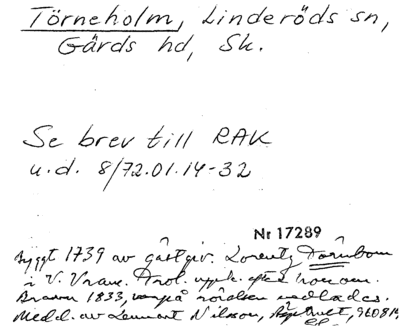 Törneholm, Linderöds sn,
Gärds hd, Sk.
Se brev till RAK
u.d. 8/72.01.14-32
Nr 17289
Byggt 1739 av gästgiv. Lorentz Törnbom
i V. Vram. Trol. uppk. efter honom.
Brann 1833, varpå rörelsen nedlades.
Medd. av Lennart Nilsson,